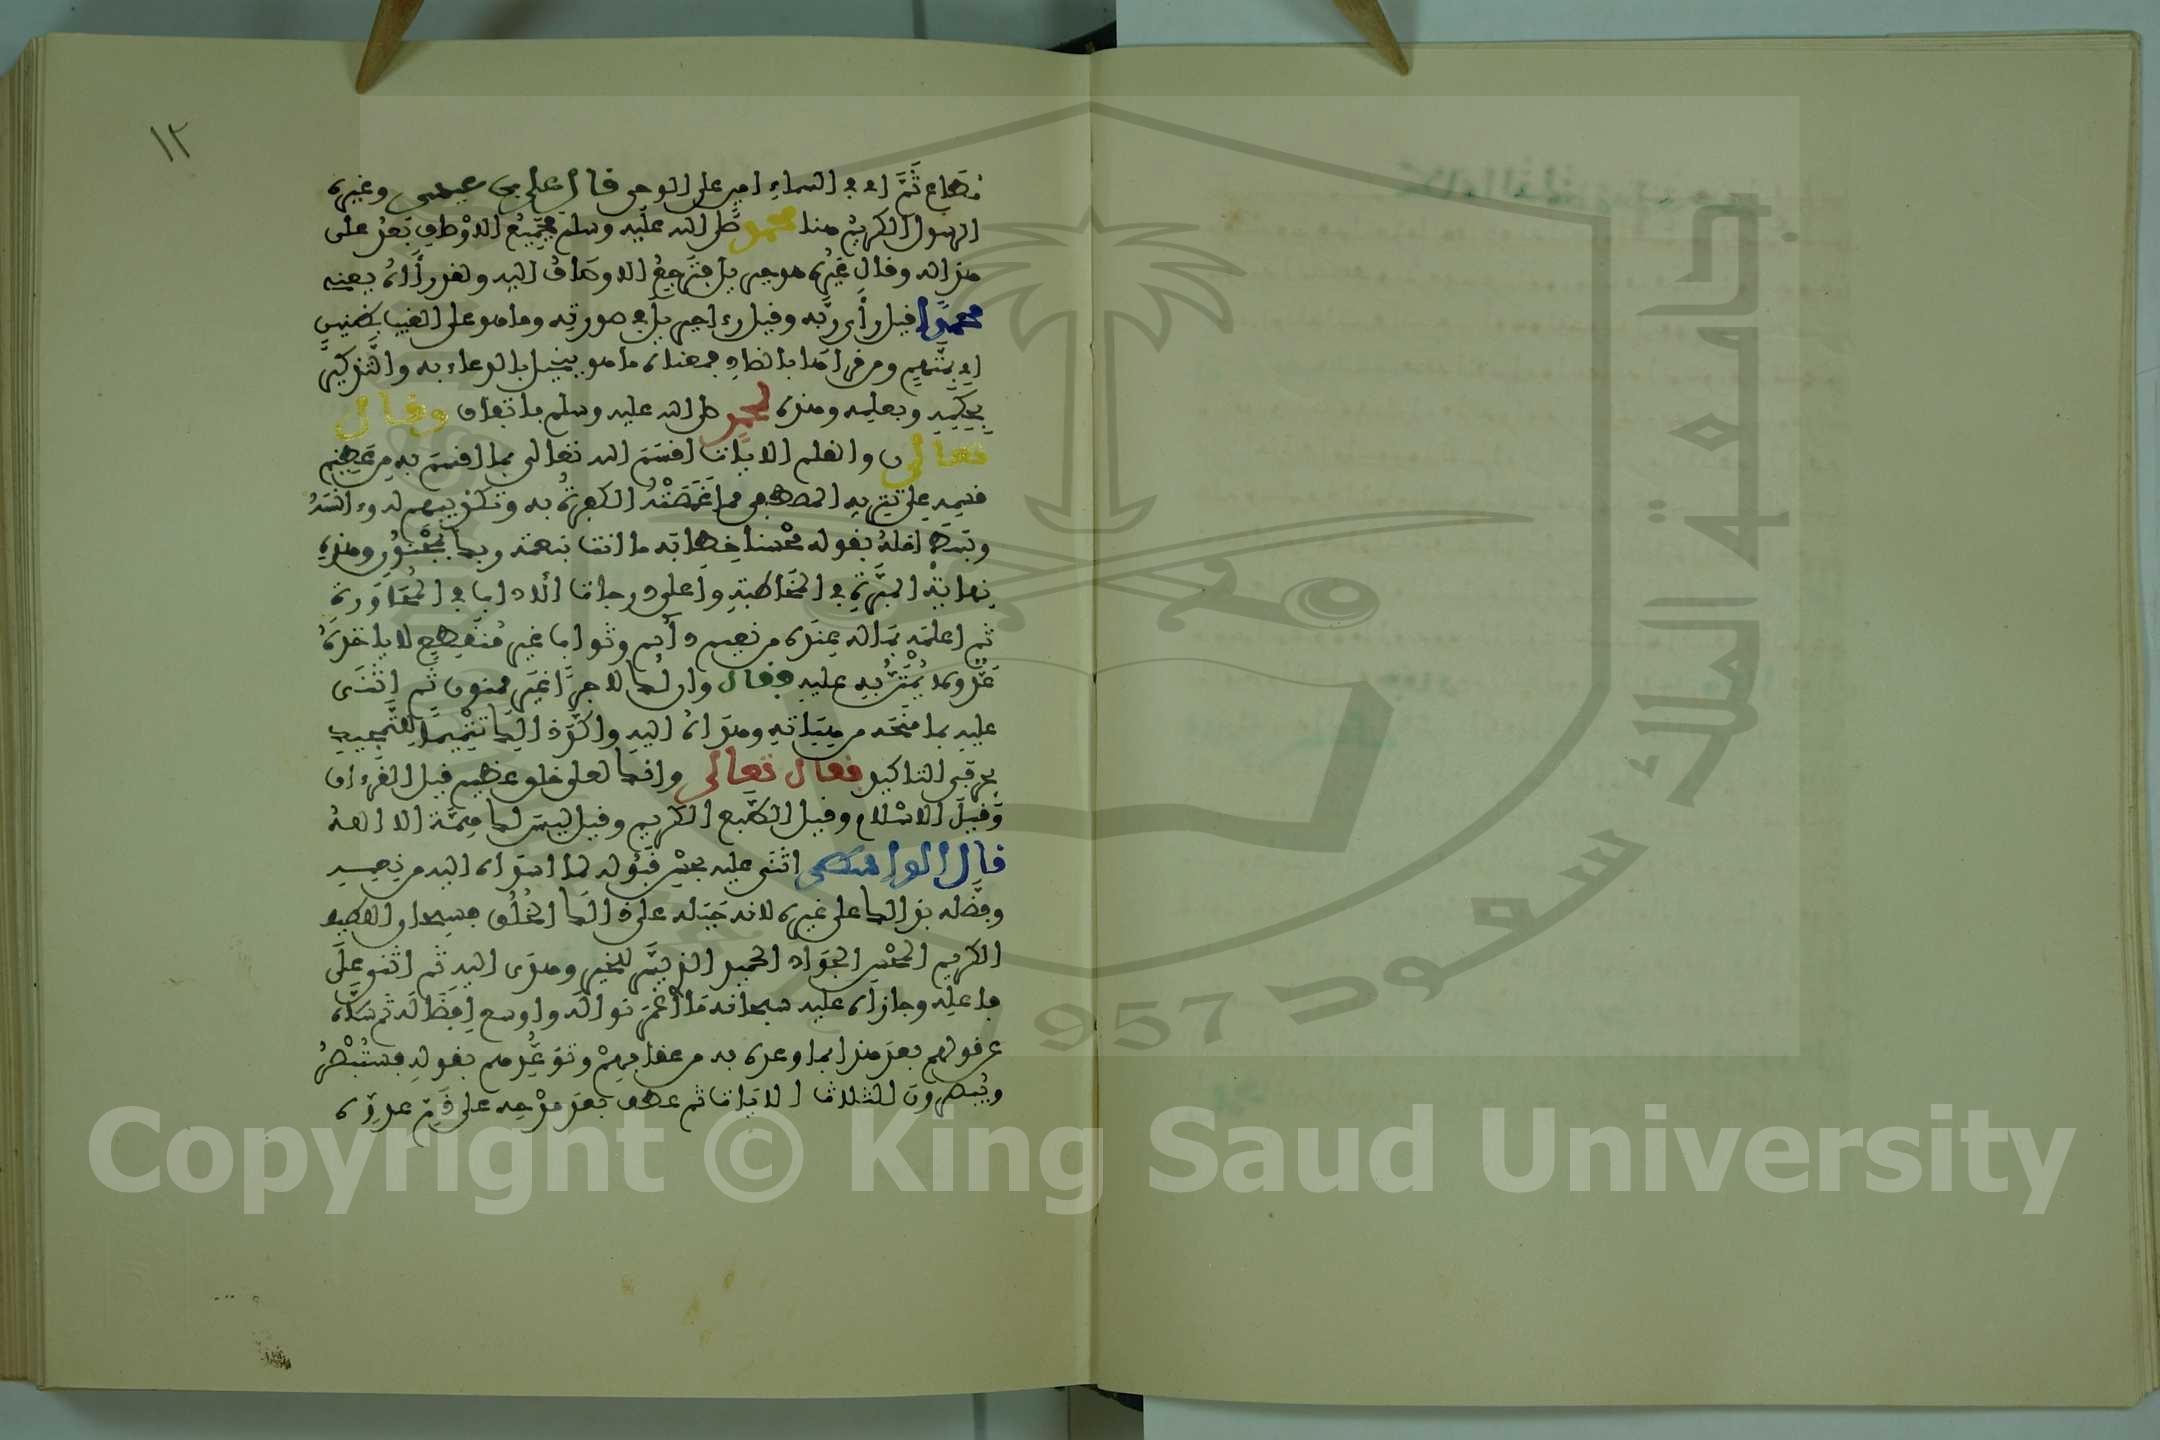 ١٢
مطاع ثَمَّ اي في السماء امين على الوحي قال علي بن عيسى وغيره
الرسول الكريم هنا محمد صلى الله عليه وسلم فجميع الاوصاف بعد على
هذا له وقال غيره هو جبريل فترجع الاوصاف اليه ولقد رءاه يعني
محمدا قيل رأى ربه وقيل رءا جبريل في صورته وما هو على الغيب بظنين
اي بمتهم ومن قرأها بالضاد فمعناه ما هو ببخيل بالدعاء به والتذكير
بحكمه وبعلمه وهذه لمحمد صلى الله عليه وسلم باتفاق وقال
تعالى ن والقلم الايات اقسم الله تعالى بما اقسم به من عظيم
قسمه على تنزيه المصطفى مما غمصته الكفرة به وتكذيبهم له وءانسه
وبسط امله بقوله محسنا خطابه ما انت بنعمة ربك بمجنون وهذه
نهاية المبرة في المخاطبة واعلى درجات الاداب في المحاورة
ثم اعلمه بما له عنده من نعيم دائم وثواب غير منقطع لا ياخذه
عد ولا يمتن به عليه فقال وان لك لاجرا غير ممنون ثم اثنى
عليه بما منحه من هباته وهداه اليه واكد ذلك تتميما للتمجيد
بحرفي التاكيد فقال تعالى وانك لعلى خلق عظيم قيل القرءان
وقيل الاسلام وقيل الطبع الكريم وقيل ليس لك همة الا الله
قال الواسطي اثنى عليه بحسن قبوله لما اسداه اليه من نعمه
وفضله بذلك على غيره لانه جبله على ذلك الخلق فسبحان اللطيف
الكريم المحسن الجواد الحميد الذي يسر للخير وهدى اليه ثم اثنى على
فاعله وجازاه عليه سبحانه ما أغمر نواله واوسع افضاله ثم سلاه
عن قولهم بعد هذا بما وعده به من عقابهم وتوعدهم بقوله فستبصر
ويبصرون الثلاث الايات ثم عطف بعد مدحه على ذم عدوه
جامعة الملك سعود
1957
Copyright © King Saud University